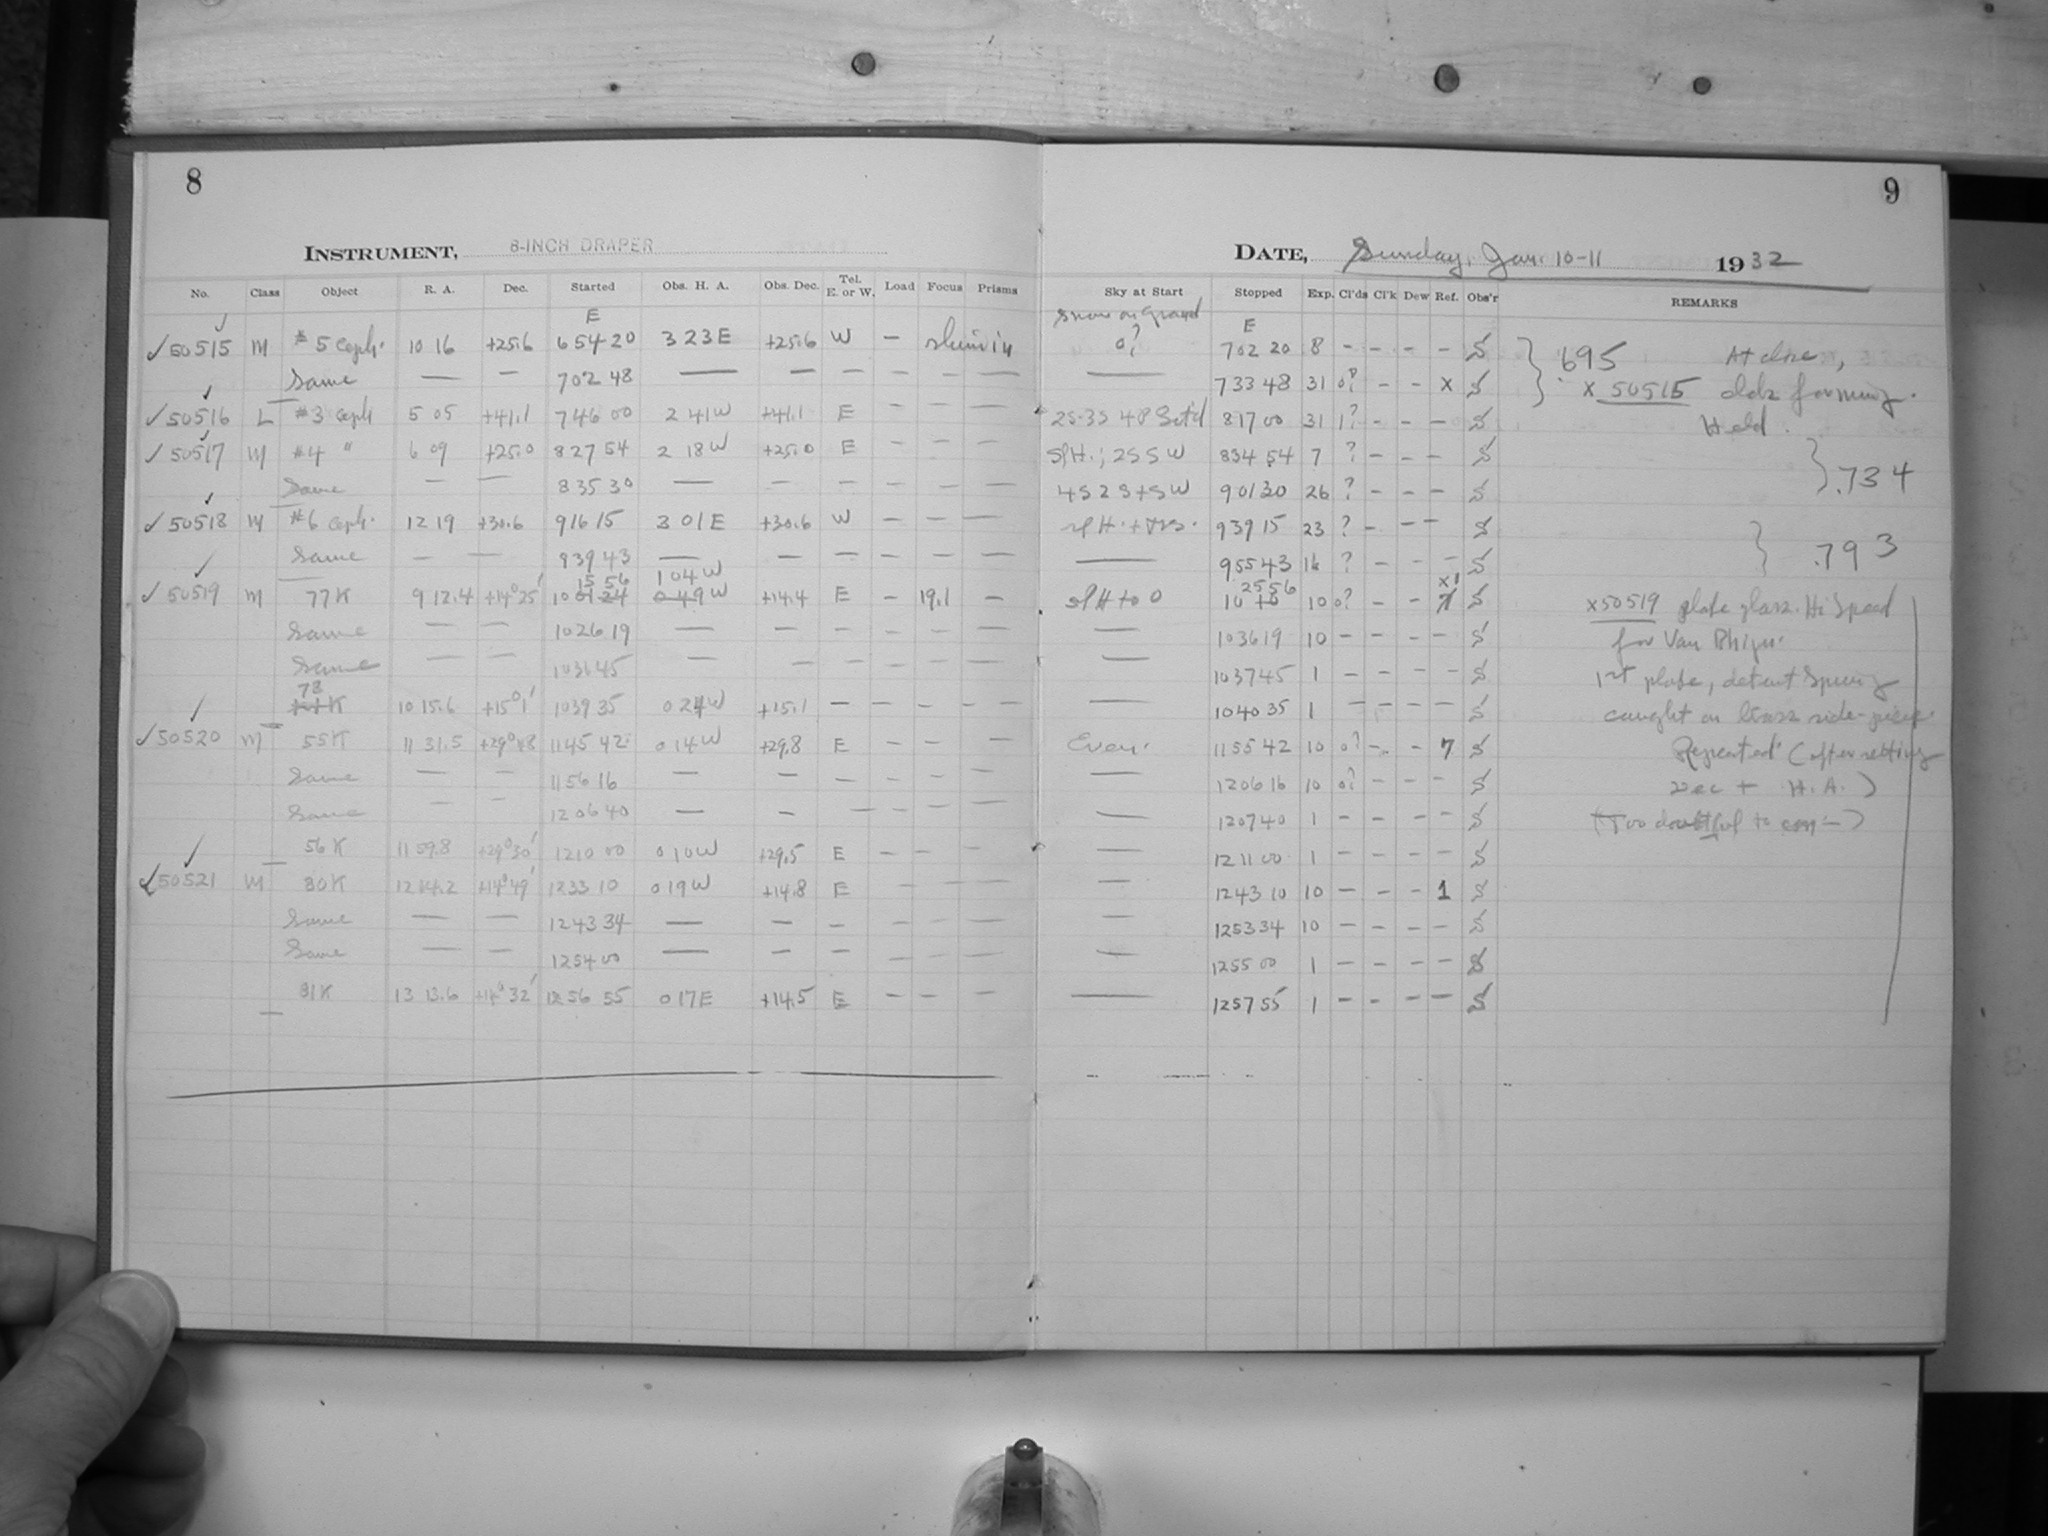 8
INSTRUMENT, 8-INCH DRAPER
No. Class Object R. A. Dec. Started Obs. H. A. Obs. Dec. Tel. E. or W. Load Focus Prisms
E
50515 M # 5 Ceph. 10 16 +25.6 6 54 20 3 23 E +25.6 W —
Same — — 7 02 48 — — — — — —
50516 L #3 Ceph 5 05 +41.1 7 46 00 2 41 W +41.1 E — — —
50517 M #4 " 6 09 +25.0 8 27 54 2 18 W +25.0 E — — —
Same — — 8 35 30 — — — — — —
50518 M #6 Ceph. 12 19 +30.6 9 16 15 3 01 E +30.6 W — — —
Same — — 9 39 43 — — — — — —
15 56 1 04 W
50519 M 77K 9 12.4 +14°25' 10 01 24 0 49 W +14.4 E — 19.1 —
Same — — 10 26 19 — — — — — —
Same — — 10 36 45 — — — — — —
78
K 10 15.6 +15°1' 10 39 35 0 24 W +15.1 — — — —
50520 M 55K 11 31.5 +29°48 11 45 42 0 14 W +29.8 E — — —
Same — — 11 56 16 — — — — — —
Same — — 12 06 40 — — — — — —
56K 11 59.8 +29°30' 12 10 00 0 10 W +29.5 E — — —
50521 M 80K 12 14.2 +14°49' 12 33 10 0 19 W +14.8 E — — —
Same — — 12 43 34 — — — — — —
Same — — 12 54 00 — — — — — —
81K 13 13.6 +14°32' 12 56 55 0 17 E +14.5 E — — —
9
DATE, Sunday, Jan. 10-11 1932
Sky at Start Stopped Exp. Cl'ds Cl'k Dew Ref. Obs'r REMARKS
Snow on ground E
0? 7 02 20 8 — — — — S .695 At close,
— 7 33 48 31 0? — — x S x 50515 cldx forming.
2S-3S 4P Sat'd 8 17 00 31 1? — — — S Held.
SlH.; 2S SW 8 34 54 7 ? — — — S
4S 2S+SW 9 01 30 26 ? — — — S .734
slH. 9 39 15 23 ? — — — S
— 9 55 43 16 ? — — — S .793
25 56 x1
slH to 0 10 10 0? — — S x50519 plate glass. Hi Speed
— 10 36 19 10 — — — — S for Van
— 10 37 45 1 — — — — S 1st plate, detent spring
— 10 40 35 1 — — — — S caught on brass side-piece.
Even. 11 55 42 10 0? — — 7 S Repeated (after setting
— 12 06 16 10 0? — — — S Dec + H.A.)
— 12 07 40 1 — — — — S (Too doubtful to )
12 11 00 1 — — — — S
— 12 43 10 10 — — — 1 S
— 12 53 34 10 — — — — S
— 12 55 00 1 — — — — S
— 12 57 55 1 — — — — S